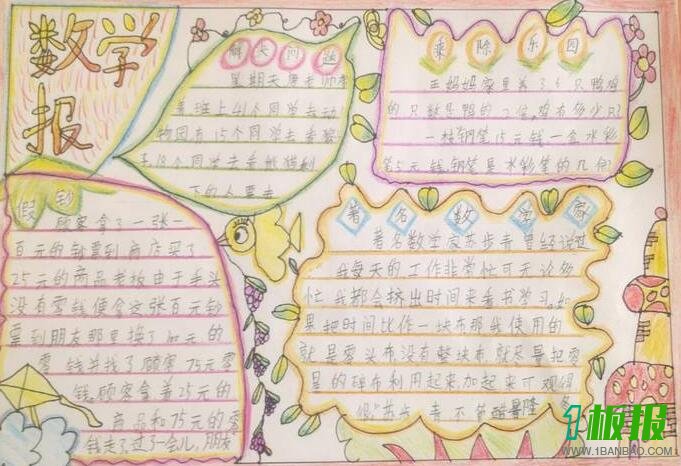 数学
报
解决问题
星期天唐老师带
着班上41个同学去动
物园有15个同学去看猴
子18个同学去看熊猫剩
下的人要去
乘除乐园
王妈妈家里养了4只鸭鸡
的只数是鸭的2倍鸡有多少只
一枝钢笔15元钱一盒水彩
笔5元钱钢笔是水彩笔的几倍
假钞
顾客拿了一张一
百元的钞票到商店买了
25元的商品老板由于手头
没有零钱便拿这张百元钞
票到朋友那里换了100元的
零钱并找了顾客75元零
钱顾客拿着25元的
商品和75元的零
钱走了,过了一会儿,朋友
著名数学家
著名数学家苏步青曾经说过
我每天的工作非常忙可无论多
忙我都会挤出时间来看书学习,如
果把时间比作一块布那我使用的
就是零头布,没有整块布,就尽量把零
星的碎布利用起来,加起来可观得
1板报
WWW.1BANBAO.COM